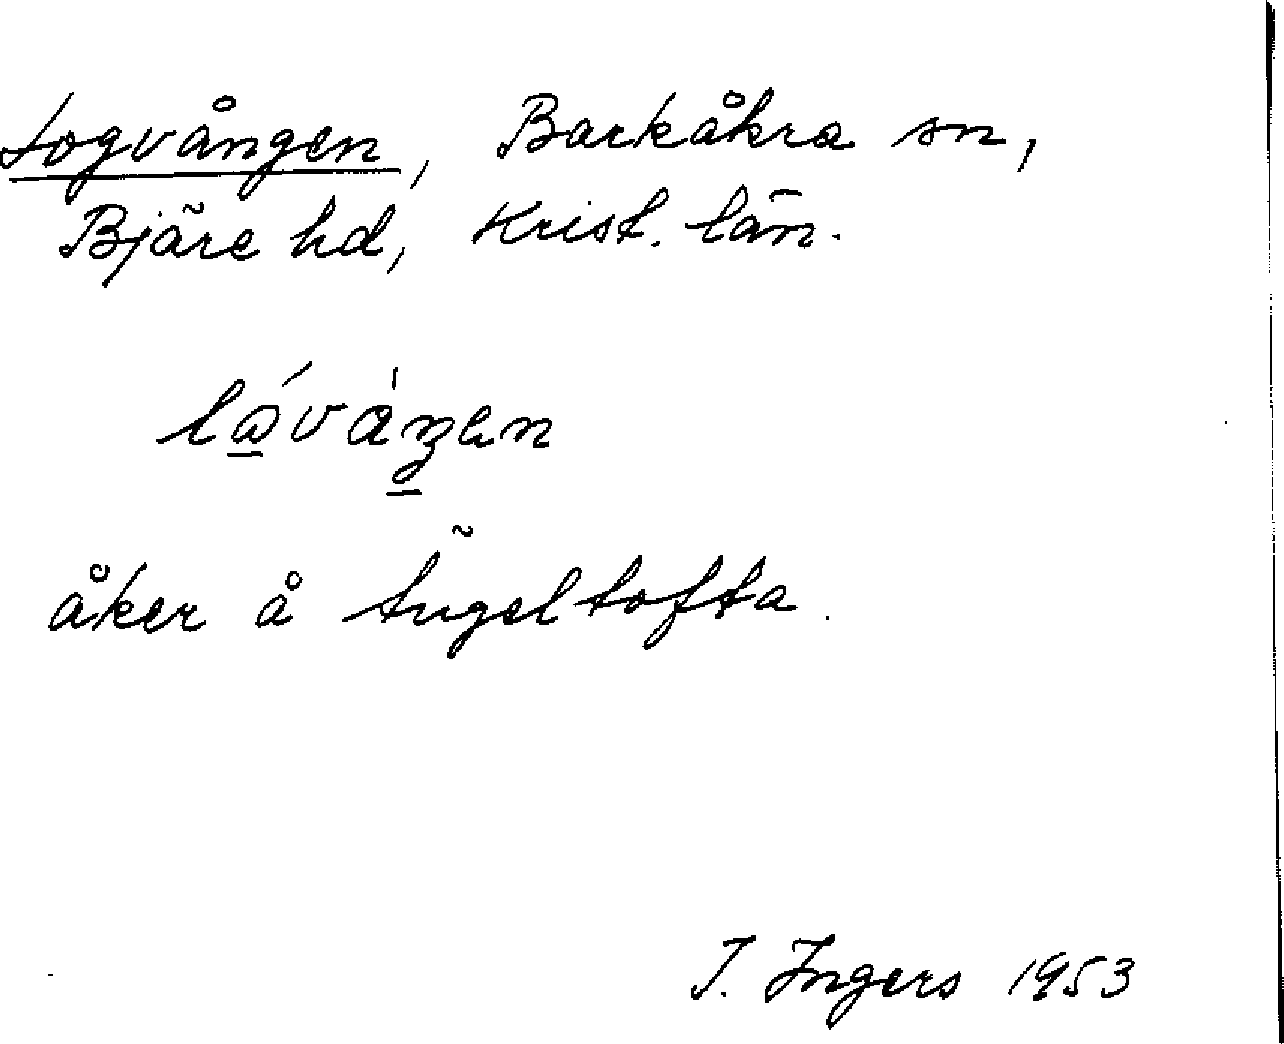 Logvången, Barkåkra sn,
Bjäre hd, Krist. län.
åker å Ängeltofta.
I. Ingers 1953